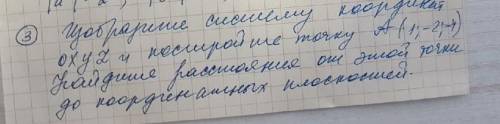 ③ Изобразите систему координат
oxyz и постройте точку A (1; -2; -4)
Найдите расстояния от этой точки
до координатных плоскостей.